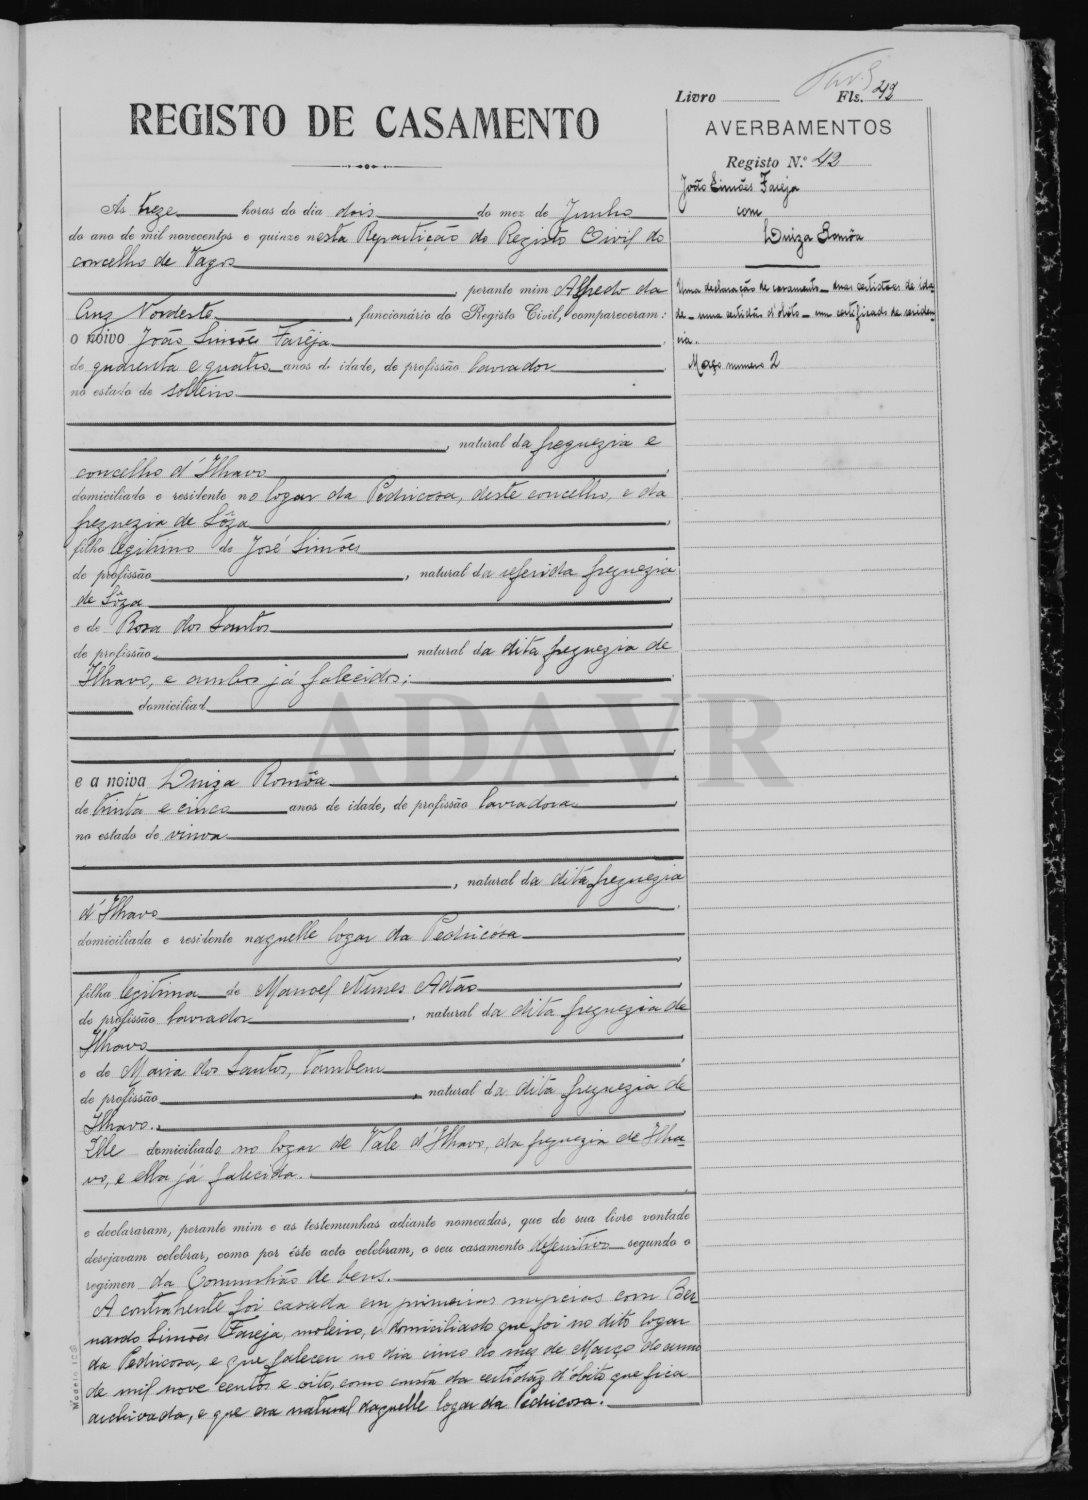 Livro Fls. 42
REGISTO DE CASAMENTO
AVERBAMENTOS
Registo N.º 42
João Simões Fareja
com
Luiza Romôa
Uma declaração de casamento _ duas certidões de ida-
de _ uma certidão d'obito _ um certificado de residen-
cia.
Maço numero 2
As treze horas do dia dois do mez de Junho
do ano de mil novecentos e quinze nesta Repartição do Registo Civil do
concelho de Vagos
, perante mim Alfredo da
Cruz Nordeste, funcionário do Registo Civil, compareceram:
o noivo João Simões Fareja
de quarenta e quatro anos de idade, de profissão lavrador
no estado de solteiro
, natural da freguezia e
concelho d'Ilhavo
domiciliado e residente no logar da Pedricosa, deste concelho, e da
freguezia de Sôza
filho legitimo de José Simões
de profissão , natural da referida freguezia
de Sôza
e de Rosa dos Santos
de profissão , natural da dita freguezia de
Ilhavo, e ambos já falecidos;
domiciliad
ADAVR
e a noiva Luiza Romôa
de trinta e cinco anos de idade, de profissão lavradora
no estado de viuva
, natural da dita freguezia
d'Ilhavo
domiciliada e residente naquelle logar da Pedricosa
filha legitima de Manoel Nunes Adão
de profissão lavrador , natural da dita freguezia de
Ilhavo
e de Maria dos Santos, tambem
de profissão , natural da dita freguezia de
Ilhavo.
Elle domiciliado no logar de Vale d'Ilhavo, da freguezia de Ilha-
vo, e ella já falecida.
e declararam, perante mim e as testemunhas adiante nomeadas, que de sua livre vontade
desejavam celebrar, como por êste acto celebram, o seu casamento definitivo segundo o
regimen da Comunhão de bens.
A contrahente foi casada em primeiras nupcias com Ber
nardo Simões Fareja, moleiro, e domiciliado que foi no dito logar
da Pedricosa, e que faleceu no dia cinco do mes de Março do anno
de mil nove centos e oito, como consta da certidão d'obito que fica
archivada, e que era natural daquelle logar da Pedricosa.